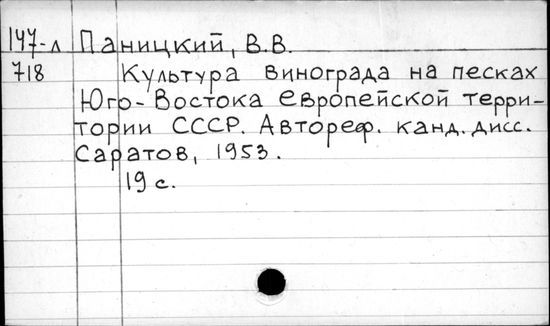 147-л Паницкий, В.В.
718 Культура винограда на песках
Юго-Востока европейской терри-
тории СССР. Автореф. канд. дисс.
Саратов, 1953.
19 с.